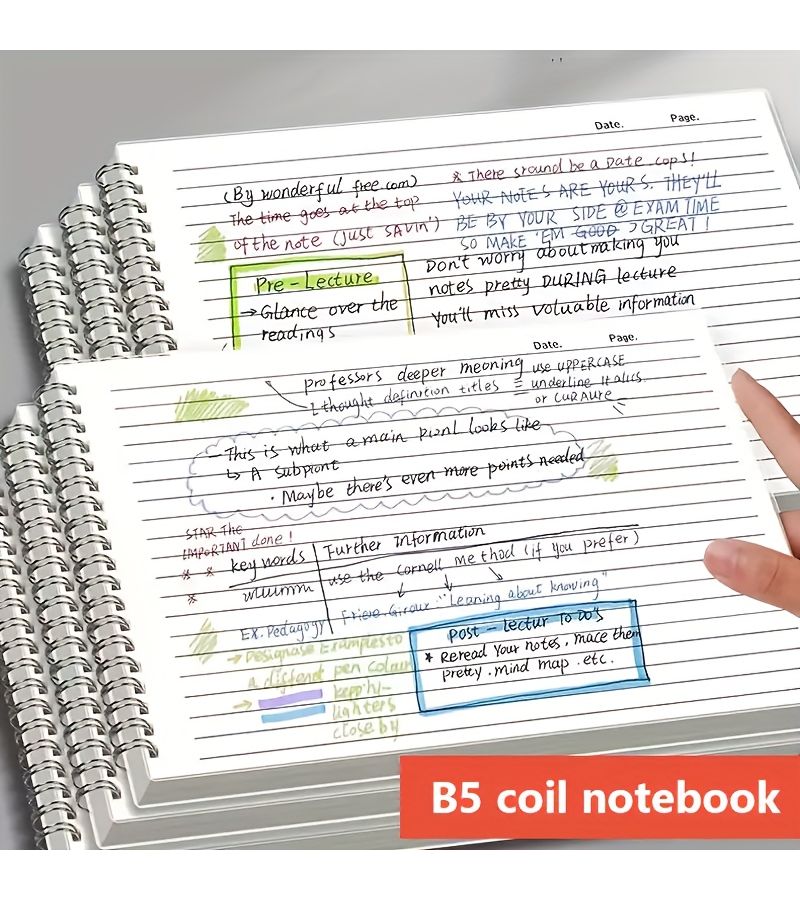 Date. Page.
(By wonderful free.com)
The time goes at the top
of the note (just SAVin')
* There sround be a Date .cops!
YOUR NOTES ARE YOURS. THEY'LL
BE BY YOUR SIDE @ EXAM TIME
SO MAKE 'EM GOOD GREAT!
Pre-Lecture
→ Glance over the
readings
Don't worry about making you
notes pretty DURING lecture
You'll miss valuable information
Date. Page.
professors deeper meoning
thought definition titles =
use UPPERCASE
underline Italics.
or CURAURe
—This is what a main Pionl looks like
↳ A Subpiont
· Maybe there's even more points needed
STAR The
IMPORTANT done!
* *
*
key words
Further information
use the Cornell method (if you prefer)
EX. Pedagogy
Friere Giroux: "Leaning about knowing"
→ Designase Examples to
a differnt pen colour
→ kepp hi-
lighters
close by
Post - Lectur To DO's
* Reread Your notes, mace them
pretty .mind map .etc.
B5 coil notebook